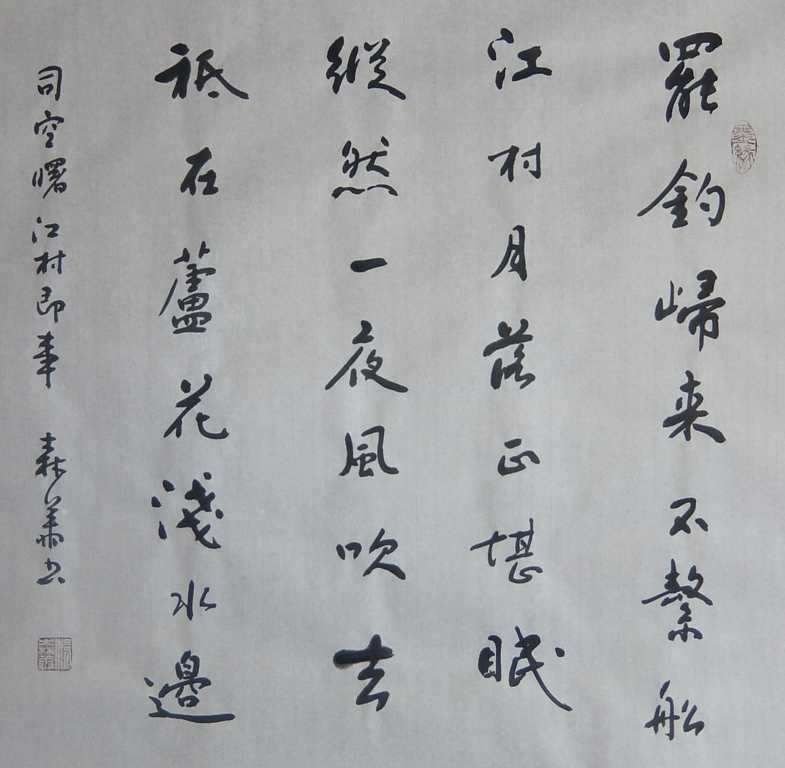 罷釣歸来不繫船
江村月落正堪眠
縱然一夜風吹去
祗在蘆花淺水邊
司空曙江村即事 森華书